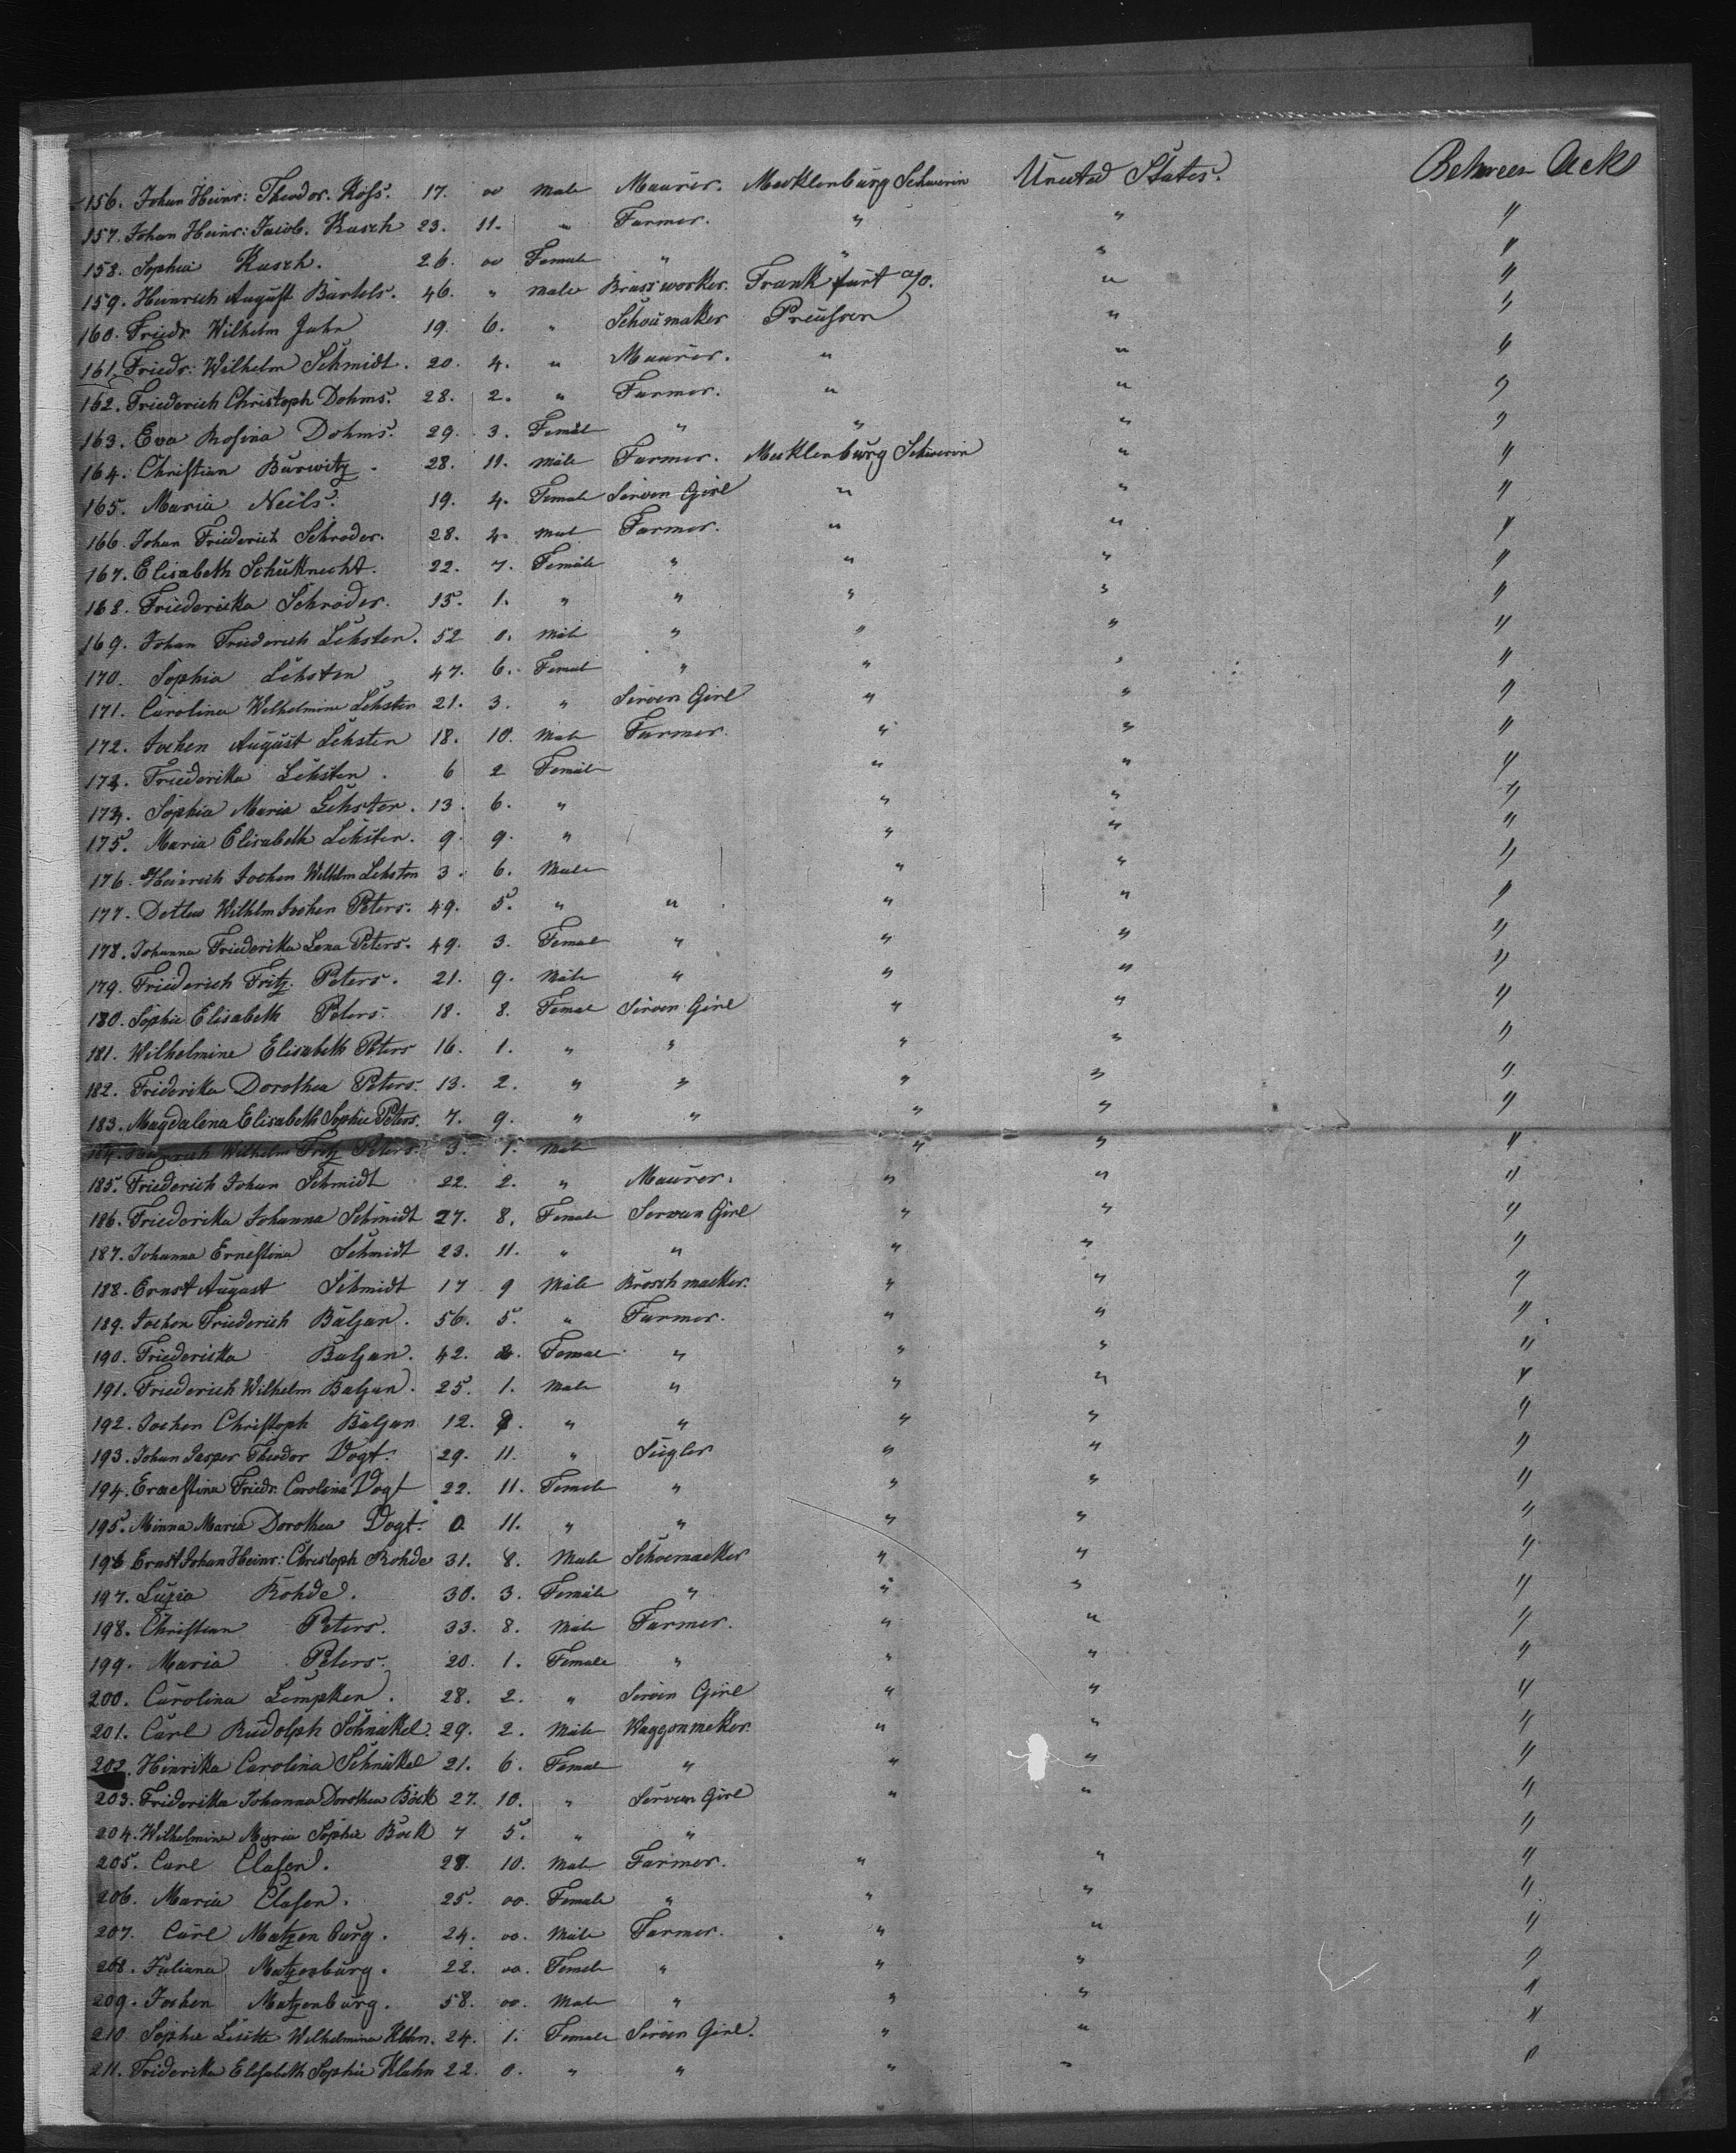 156. Johan Heinr: Theodor. Koss. 17. oo Male Maurer. Mecklenburg Schwerin Uneted States. Between Deks
157. Johan Heinr: Jacob. Rusch 23. 11. " Farmer. " " "
158. Sophia Rusch. 26. oo Female " " " "
159. Heinrich August Bartels. 46. " Male Brass worker. Frankfurt a/O. " "
160. Friedr Wilhelm Jahn 19. 6. " Schoumaker Preussen " "
161. Friedr: Wilhelm Schmidt. 20. 4. " Maurer. " " "
162. Friederich Christoph Dohms. 28. 2. " Farmer. " " "
163. Eva Rosina Dohms. 29. 3. Femäl " " " "
164. Christian Burwitz. 28. 11. Male Farmer. Mecklenburg Schwerin " "
165. Maria Neels. 19. 4. Female Serven Girl " " "
166. Johan Friederich Schroder. 28. 4. Mal Farmer. " " "
167. Elisabeth Schuknecht. 22. 7. Female " " " "
168. Friedericka Schroder. 15. 1. " " " " "
169. Johan Friederich Lehsten. 52 0. Male " " " "
170. Sophia Lehsten 47. 6. Femal " " " "
171. Carolina Wilhelmine Lehsten 21. 3. " Serven Girl " " "
172. Jochen August Lehsten 18. 10. Male Farmer. " " "
173. Friederika Lehsten. 6 2 Female " " "
174. Sophia Maria Lehsten. 13. 6. " " " "
175. Maria Elisabeth Lehsten. 9. 9. " " " "
176. Heinrich Jochen Wilhlm Lehsten 3. 6. Male " " "
177. Detlew Wilhlm Jochen Peters. 49. 5. " " " " "
178. Johanna Friederika Lena Peters. 49. 3. Femal " " " "
179. Friederich Fritz. Peters. 21. 9. Male " " " "
180. Sophie Elisabeth Peters. 18. 8. Femal Serven Girl " " "
181. Wilhelmine Elisabeth Peters 16. 1. " " " " "
182. Friderika Dorothea Peters. 13. 2. " " " " "
183. Magdalena Elisabeth Sophie Peters. 7. 9. " " " " "
184. Heinrich Wilhelm Fritz Peters. 3. 1. Male " " "
185. Friederich Johan Schmidt 22. 2. " Maurer. " " "
186. Friederika Johanna Schmidt 27. 8. Female Servan Girl " " "
187. Johanna Ernestina Schmidt 23. 11. " " " " "
188. Ernst August Schmidt 17 9 Male Broschmacker. " " "
189. Jochen Friederich Baljan. 56. 5. " Farmer. " " "
190. Friedericka Baljan. 42. Femal " " " "
191. Friederich Wilhelm Baljan. 25. 1. Male " " " "
192. Jochen Christoph Baljan 12. " " " " "
193. Johan Jasper Theodor Vogt. 29. 11. " Siegler " " "
194. Ernestina Friedr. Carolina Vogt 22. 11. Female " " " "
195. Minna Maria Dorothea Vogt. 0. 11. " " " " "
196 Ernst Johan Heinr: Christoph Rohde 31. 8. Male Schoemacker " " "
197. Luzia Rohde. 30. 3. Female " " " "
198. Christian Peters. 33. 8. Male Farmer. " " "
199. Maria Peters. 20. 1. Female " " " "
200. Carolina Lempken. 28. 2. " Serven Girl " " "
201. Carl Rudolph Schnakel. 29. 2. Male Waggonmeker. " " "
202. Hinrika Carolina Schnakel 21. 6. Femal " " " "
203. Friderika Johanna Dorothea Böck 27. 10. " Servan Girl " " "
204. Wilhelmina Maria Sophie Bock 7 5. " " "
205. Carl Clasen. 10. Male Farmer. " " "
206. Maria Clasen. 25. oo. Female " " " "
207. Carl Matzenburg. 24. oo. Male Farmer. " " "
208. Juliana Matzenburg. 22. oo. Female " " " "
209. Jochen Matzenburg. 58. oo. Male " " " "
210. Sophie Lisette Wilhelmina Klahn. 24. 1. Female Serven Girl. " " "
211. Friderika Elisabeth Sophie Klahn 22. 0. " " " " "